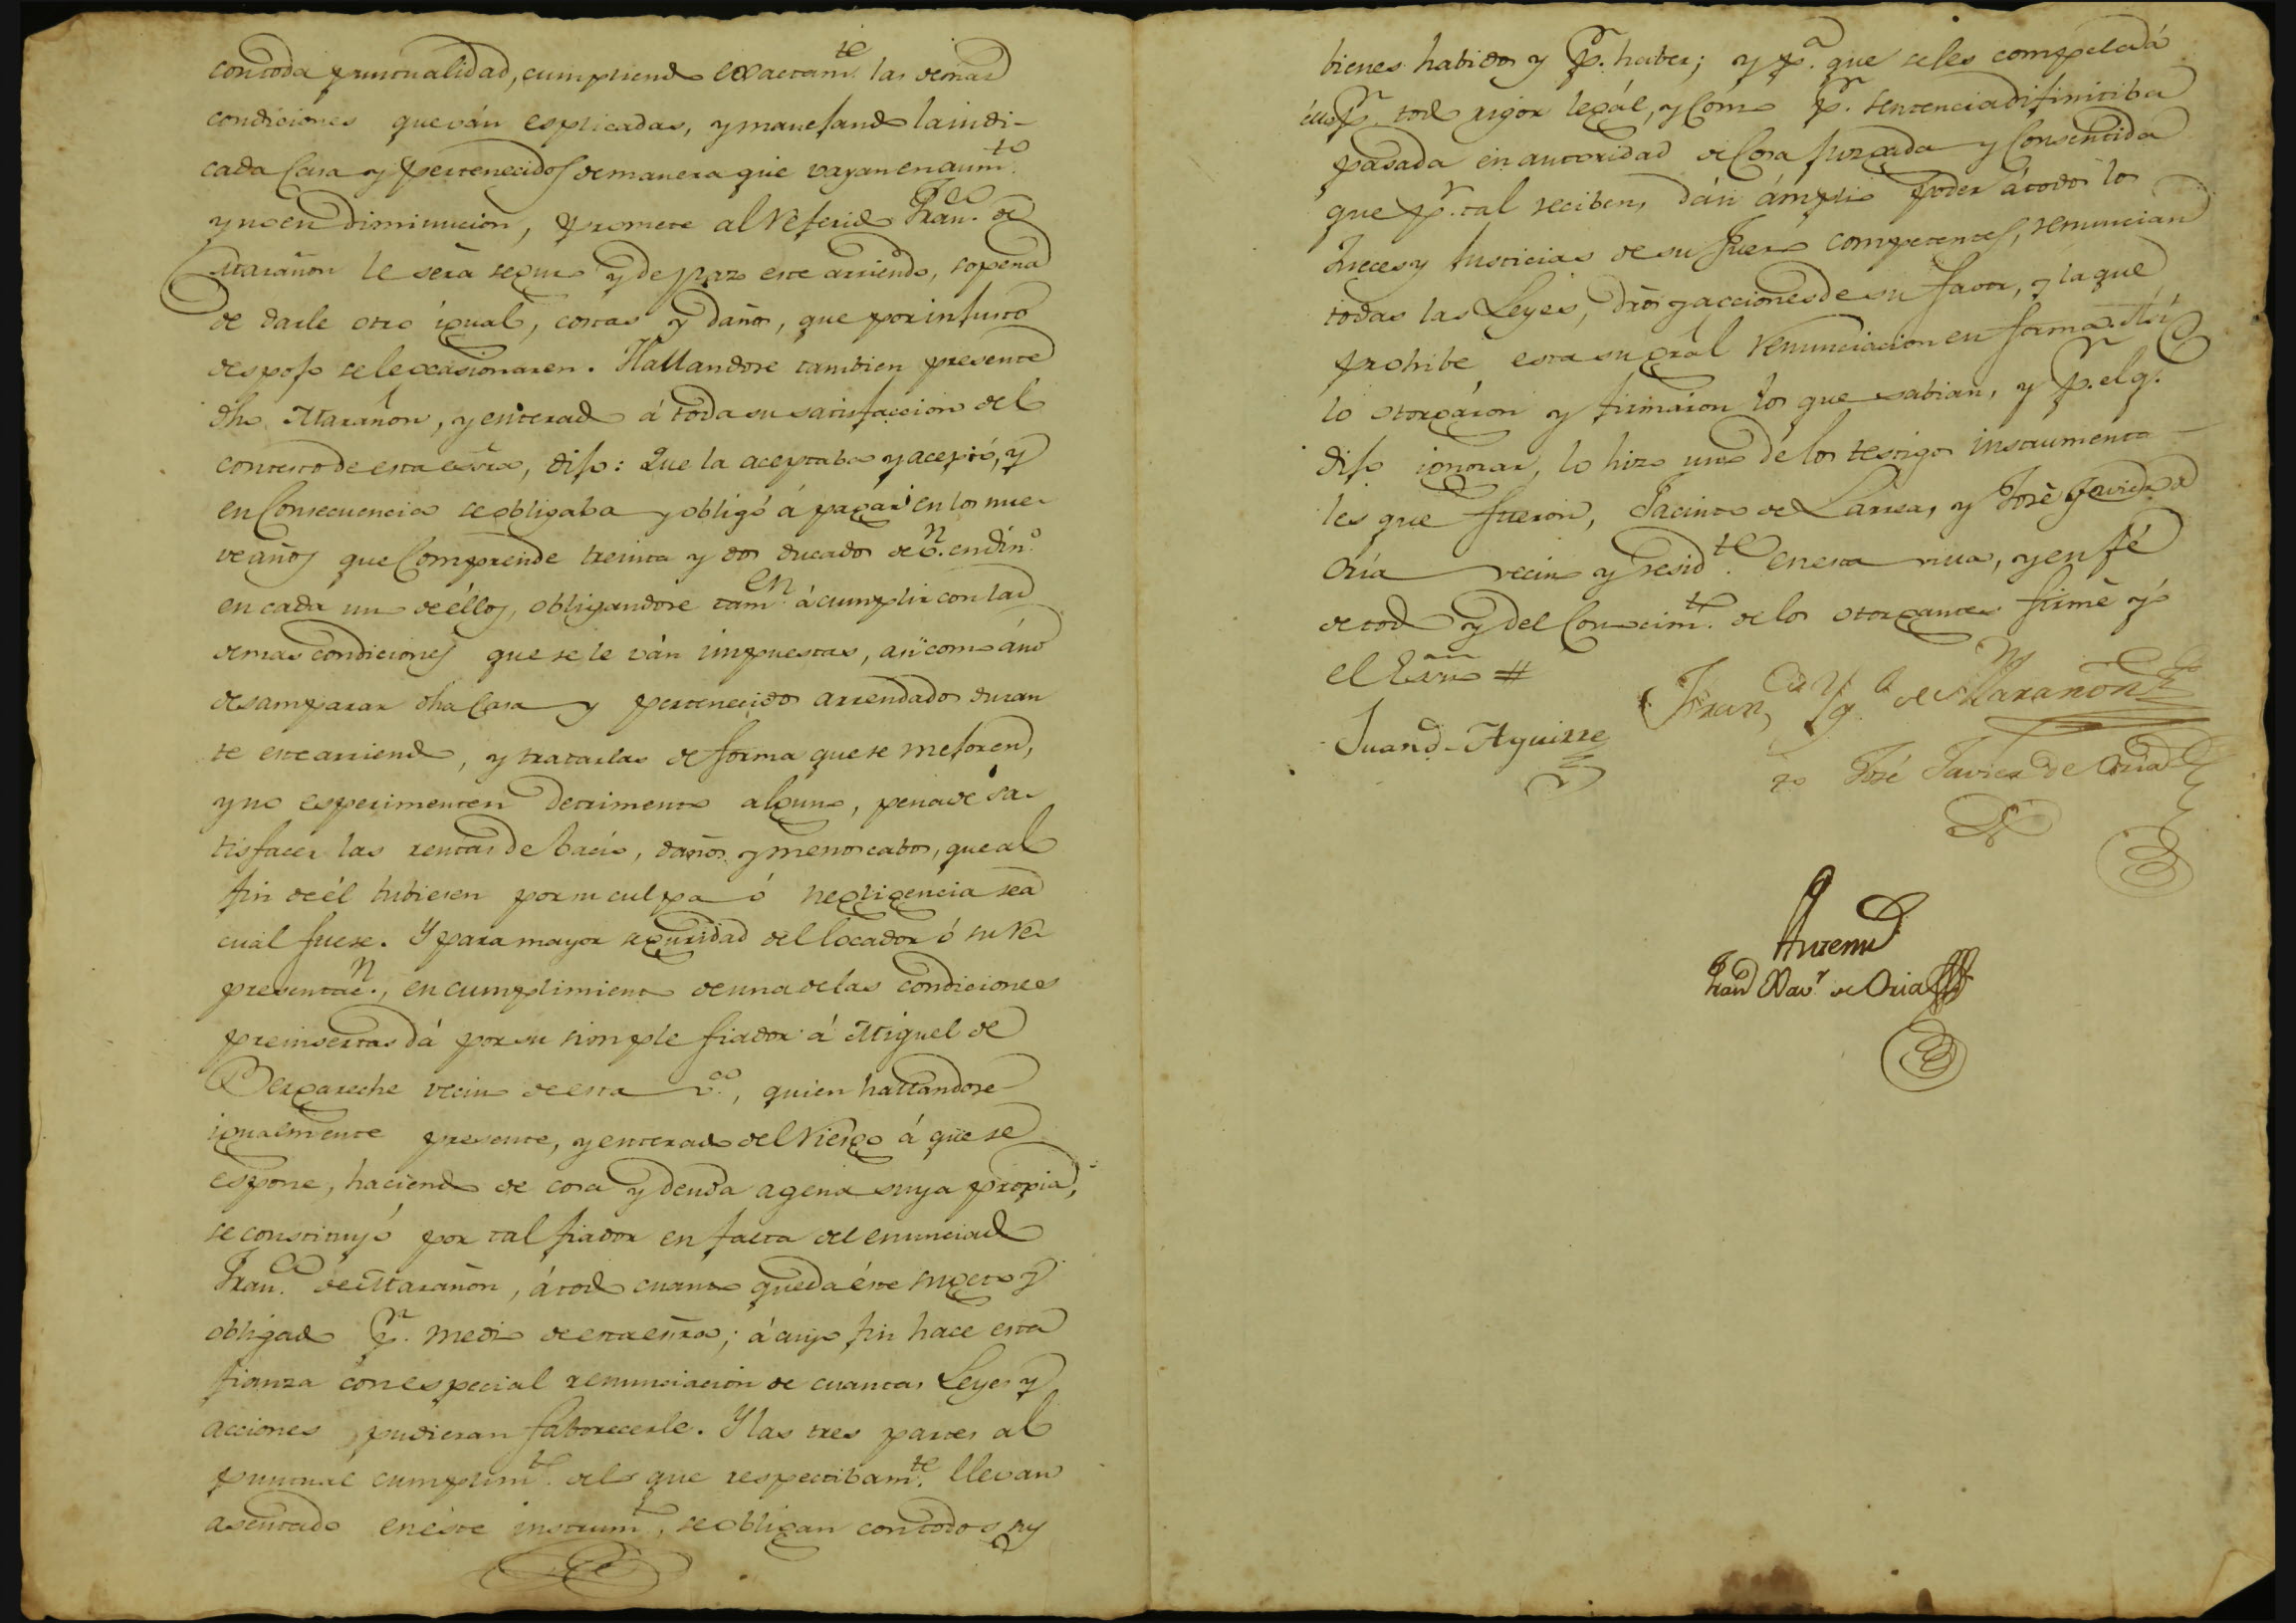 con toda puntualidad, cumpliendo exactam.te las demas
condiciones que ván esplicadas, y manejando la indi-
cada Casa y pertenecidos de manera que vayan en aum.to
y no en diminucion, promete al referido Fran.co de
Marañon le será seguro y de paz este arriendo, sopena
de darle otro igual, costas y daños, que por injusto
despojo se le ocasionaren. Hallandose tambien presente
dho Marañon, y enterado á toda su satisfaccion del
contesto de esta esrra, dijo: Que la aceptaba y aceptó, y
en Consecuencia se obligaba y obligó á pagar en los nue-
ve años que Comprende treinta y dos ducados de v.n en din.o
en cada uno de éllos, obligandose tam.en á cumplir con las
demas condiciones que se le ván impuestas, asi como á no
desamparar dha Casa y pertenecidos arrendados duran
te este arriendo, y tratarlas de forma que se mejoren,
y no esperimenten detrimento alguno, pena de sa-
tisfacer las rentas de bacio, daños y menoscabos, que al
fin de él hubiesen por su culpa ó negligencia sea
cual fuese. Y para mayor seguridad del locador ó su re-
presentac.n, en cumplimiento de una de las condiciones
preinsertas dá por su simple fiador á Miguel de
Bergareche vecino de esta v.a, quien hallandose
igualmente presente, y enterado del riesgo á que se
espone, haciendo de cosa y deuda agena suya propia,
se constituyó por tal fiador en falta del enunciado
Fran.co de Marañon, á todo cuanto queda éste sugeto y
obligado p.r medio de esta esrra; á cuyo fin hace esta
fianza con especial renunciacion de cuantas Leyes y
acciones pudieran faborecerle. Y las tres partes al
puntual cumplim.to de lo que respectibam.te llevan
asentado en éste instrum.to, se obligan con todos sus
bienes habidos y p.r haber; y p.a que se les compela á
éllo p.r todo rigor legál, y Cómo p.r sentencia difinitiba
pasada en autoridad de Cosa juzgada y Consentida
que p.r tal reciben, dán ámplio poder á todos los
Jueces y Justicias de su fuero competentes, renunciando
todas las Leyes, dros y acciones de su favor, y la que
prohibe esta su grál renunciacion en forma. Asi
lo otorgáron y firmáron los que sabian, y p.r el q.e
dijo ignorar, lo hizo uno dé los testigos instrumenta-
les que fueron, Jacinto de Larrea, y José Javier de
Oria vecino y resid.te en esta villa, y en fé
de todo y del Conocim.to de los otorgantes firmé yo
el Esno #
Juan de Aguirre
Fran.co Yg.o de Marañon
to José Javier de Oria
Antemi
Fran.co Xav.r de Oria